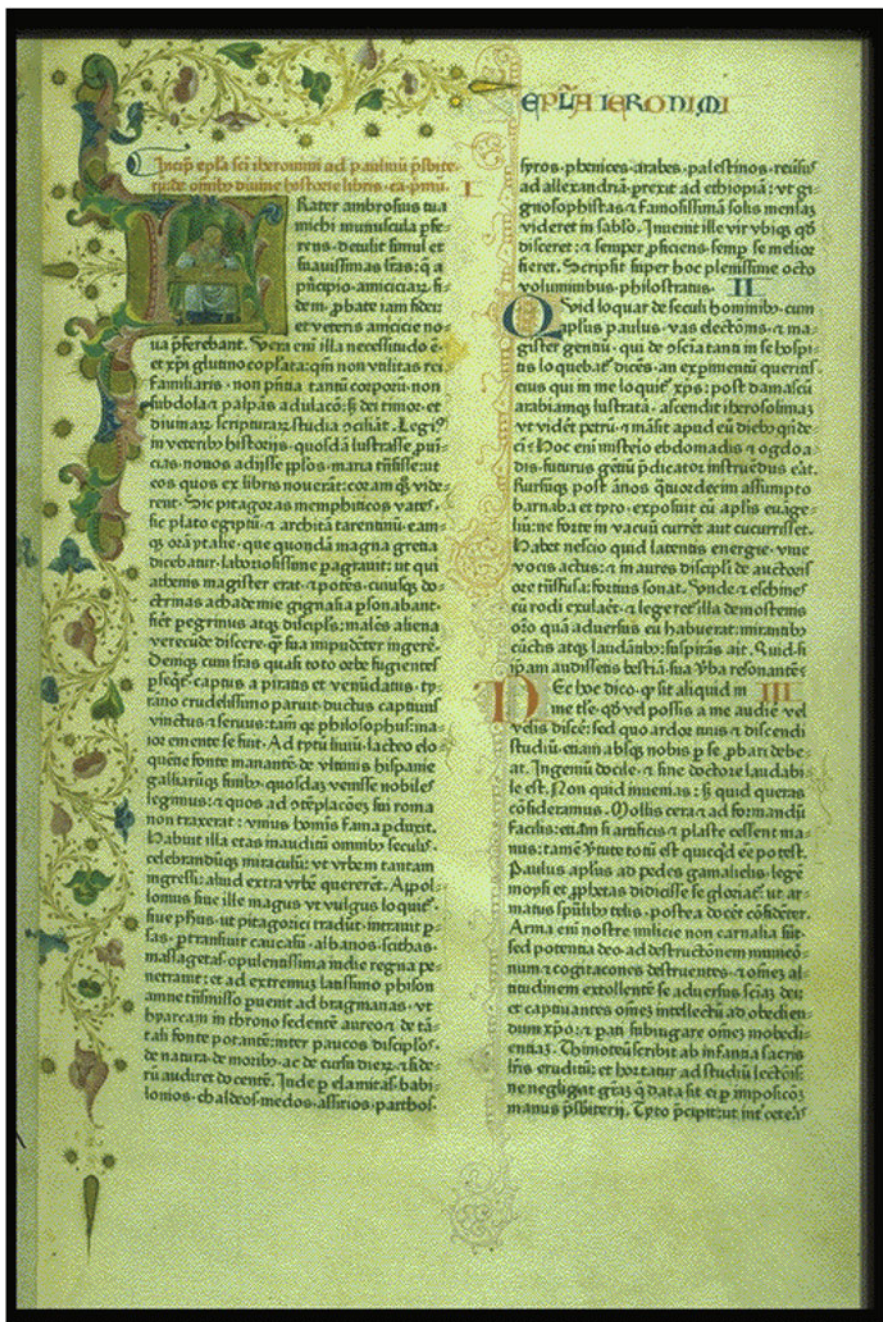 EPL̃A IERONIMI
Incip̃ epl̃a sc̃i iheronimi ad paulinũ p̃sbite⸗
rũ: de om̃ibꝰ divine historie libris. ca. p̃mũ.
I
Frater ambrosius tua
michi munuscula pfe⸗
rens. detulit simul et
suavissimas l̃ras: q̃ a
p̃ncipio amiciciaꝝ. fi⸗
dem. ꝓbate iam fidei
et veteris amicicie no⸗
ua p̃ferebant. Vera eni illa necessitudo ẽ.
et xp̃i glutino copl̃ata: qm̃ non vtilitas rei
familiaris. non p̃ntia tantũ corporũ. non
subdola ⁊ palpãs adulacõ: sꝫ dei timor. et
diuinaꝝ scripturaꝝ studia ↄciliãt. Legimꝰ
in veteribꝰ historijs. quosdã lustrasse ꝓuī⸗
cias. nouos adijsse pplõs. maria trãsisse: ut
eos quos ex libris nouerãt: coram qꝫ vide⸗
rent. Sic pitagoras memphiticos vates.
sic plato egiptũ. ⁊ architã tarentinũ. eam⸗
qꝫ orã ytalie. que quondã magna grecia
dicebatur. laboriosissime pagrauit: ut qui
athenis magister erat. ⁊ potẽs. cuiusqꝫ do⸗
ctrinas achademie gignasia psonabant.
fiẽt pegrinus atqꝫ discipl̃s: malẽs aliena
verecũde discere. qᷓ sua impudẽter ingerẽ.
Deniqꝫ cum l̃ras quasi toto orbe fugientes
pseqẽt̃. captus a piratis et venũdatus. ty⸗
rãno crudelissimo paruit. ductus captiuus
vinctus ⁊ seruus: tam̃ qꝛ philosophus: ma⸗
ior emente se fuit. Ad tytũ liuiũ. lacteo elo
quẽne fonte manantẽ. de vltimis hispanie
galliarũqꝫ finibꝰ. quosdaꝫ venisse nobiles
legimus: ⁊ quos ad ↄtẽplacõeꝫ sui roma
non traxerat: vnius hom̃is fama pduxit.
Habuit illa etas inauditũ omnibꝰ seculis.
celebrandũqꝫ miraculũ: vt vrbem tantam
ingressi: aliud extra vrbẽ quererẽt. Appol⸗
lonius siue ille magus vt vulgus loquitᷣ.
siue ph̃us. ut pitagorici tradũt. intrauit p⸗
sas. ptransiuit caucasũ. albanos. scithas.
massagetas. opulentissima indie regna pe⸗
netrauit: et ad extremuꝫ latissimo phison
amne trãsmisso puenit ad bragmanas. vt
hyarcam in throno sedentẽ aureo ⁊ de tã⸗
tali fonte potantẽ: inter paucos discipl̃os.
de natura. de moribꝰ. ac de cursu dieꝝ. ⁊ side⸗
rũ audiret docentẽ. Inde p elamitas. babi⸗
lonios. chaldeos. medos. assirios. parthos.
syros. phenices. arabes. palestinos. reũsus
ad allexandriã. prexit ad ethiopiã: vt gi⸗
gnosophistas ⁊ famosissimã solis mensaꝫ
videret in sabl̃o. Inuenit ille vir vbiqꝫ qđ
disceret: ⁊ semper ꝓficiens. semp se melior
fieret. Scripsit super hoc plenissime octo
voluminibus. philostratus. II
Quid loquar de seculi hominibꝰ. cum
apl̃us paulus. vas electõnis. ⁊ ma⸗
gister gentiũ. qui de ↄsc̃ia tanti in se hospi⸗
tis loquebatᷣ dicẽs. an expimentũ queritis
eius qui in me loquitᷣ xp̃s: post damascũ
arabiamqꝫ lustratã. ascendit iherosolimaꝫ
vt vidẽt petrũ. ⁊ mãsit apud eũ diebꝰ qn̄de⸗
ci. Hoc eni misteio ebdomadis ⁊ ogdoa⸗
dis. futurus gẽtiũ p̃dicator instruẽdus erãt.
Rursũqꝫ post ãnos qᷓtuordecim assumpto
barnaba et tyto. exposuit cũ apl̃is euãge⸗
liũ: ne forte in vacuũ currẽt aut cucurrisset.
Habet nescio quid latentis energie. viue
vocis actus: ⁊ in aures discipl̃i de auctoris
ore trãsfusa: fortius sonat. Vnde ⁊ eschines
cũ rodi exulaẽt. ⁊ legeretᷣ illa demostenis
orõ quã aduersus eũ habuerat: mirantibꝰ
cũctis atqꝫ laudãtibꝰ: suspirãs ait. Quid si
ip̃am audissetis bestiã. sua v̾ba resonantẽ:
Nec hoc dico. qꝛ sit aliquid in III
me tl̃e. qđ vel possis a me audiẽ vel
velis discẽ: sed quo ardor tuus ⁊ discendi
studiũ. etiam absqꝫ nobis p se ꝓbari debe⸗
at. Ingeniũ docile. ⁊ sine doctore laudabi⸗
le est. Non quid inuenias: sꝫ quid queras
cõsideramus. Mollis cera ⁊ ad formandũ
facilis: etiam si artificis ⁊ plaste cessent ma⸗
nus: tamẽ v̾tute totũ est quicqđ eẽ potest.
Paulus apl̃us ad pedes gamalielis. legẽ
moysi et ꝓphetas didicisse se gloriatᷣ. ut ar⸗
matus spũlibꝰ telis. postea docẽt cõfidẽter.
Arma eni nostre milicie non carnalia sũt.
sed potentia deo. ad destructõnem municõ⸗
num ⁊ cogitacones destruentes. ⁊ om̃eꝫ al⸗
titudinem extollentẽ se aduersus sc̃iaꝫ dei:
et captiuantes om̃eꝫ intellectũ ad obedien⸗
dum xp̃o: ⁊ pati subiugare om̃eꝫ inobedi⸗
entiaꝫ. Thimoteũ scribit ab infantia sacris
l̃ris eruditũ: et hortatur ad studiũ lectõis:
ne negligat gr̃aꝫ q̃ data sit ei p imposicõꝫ
manus p̃sbiterij. Tyto p̃cipit: ut int̾ cet̾as